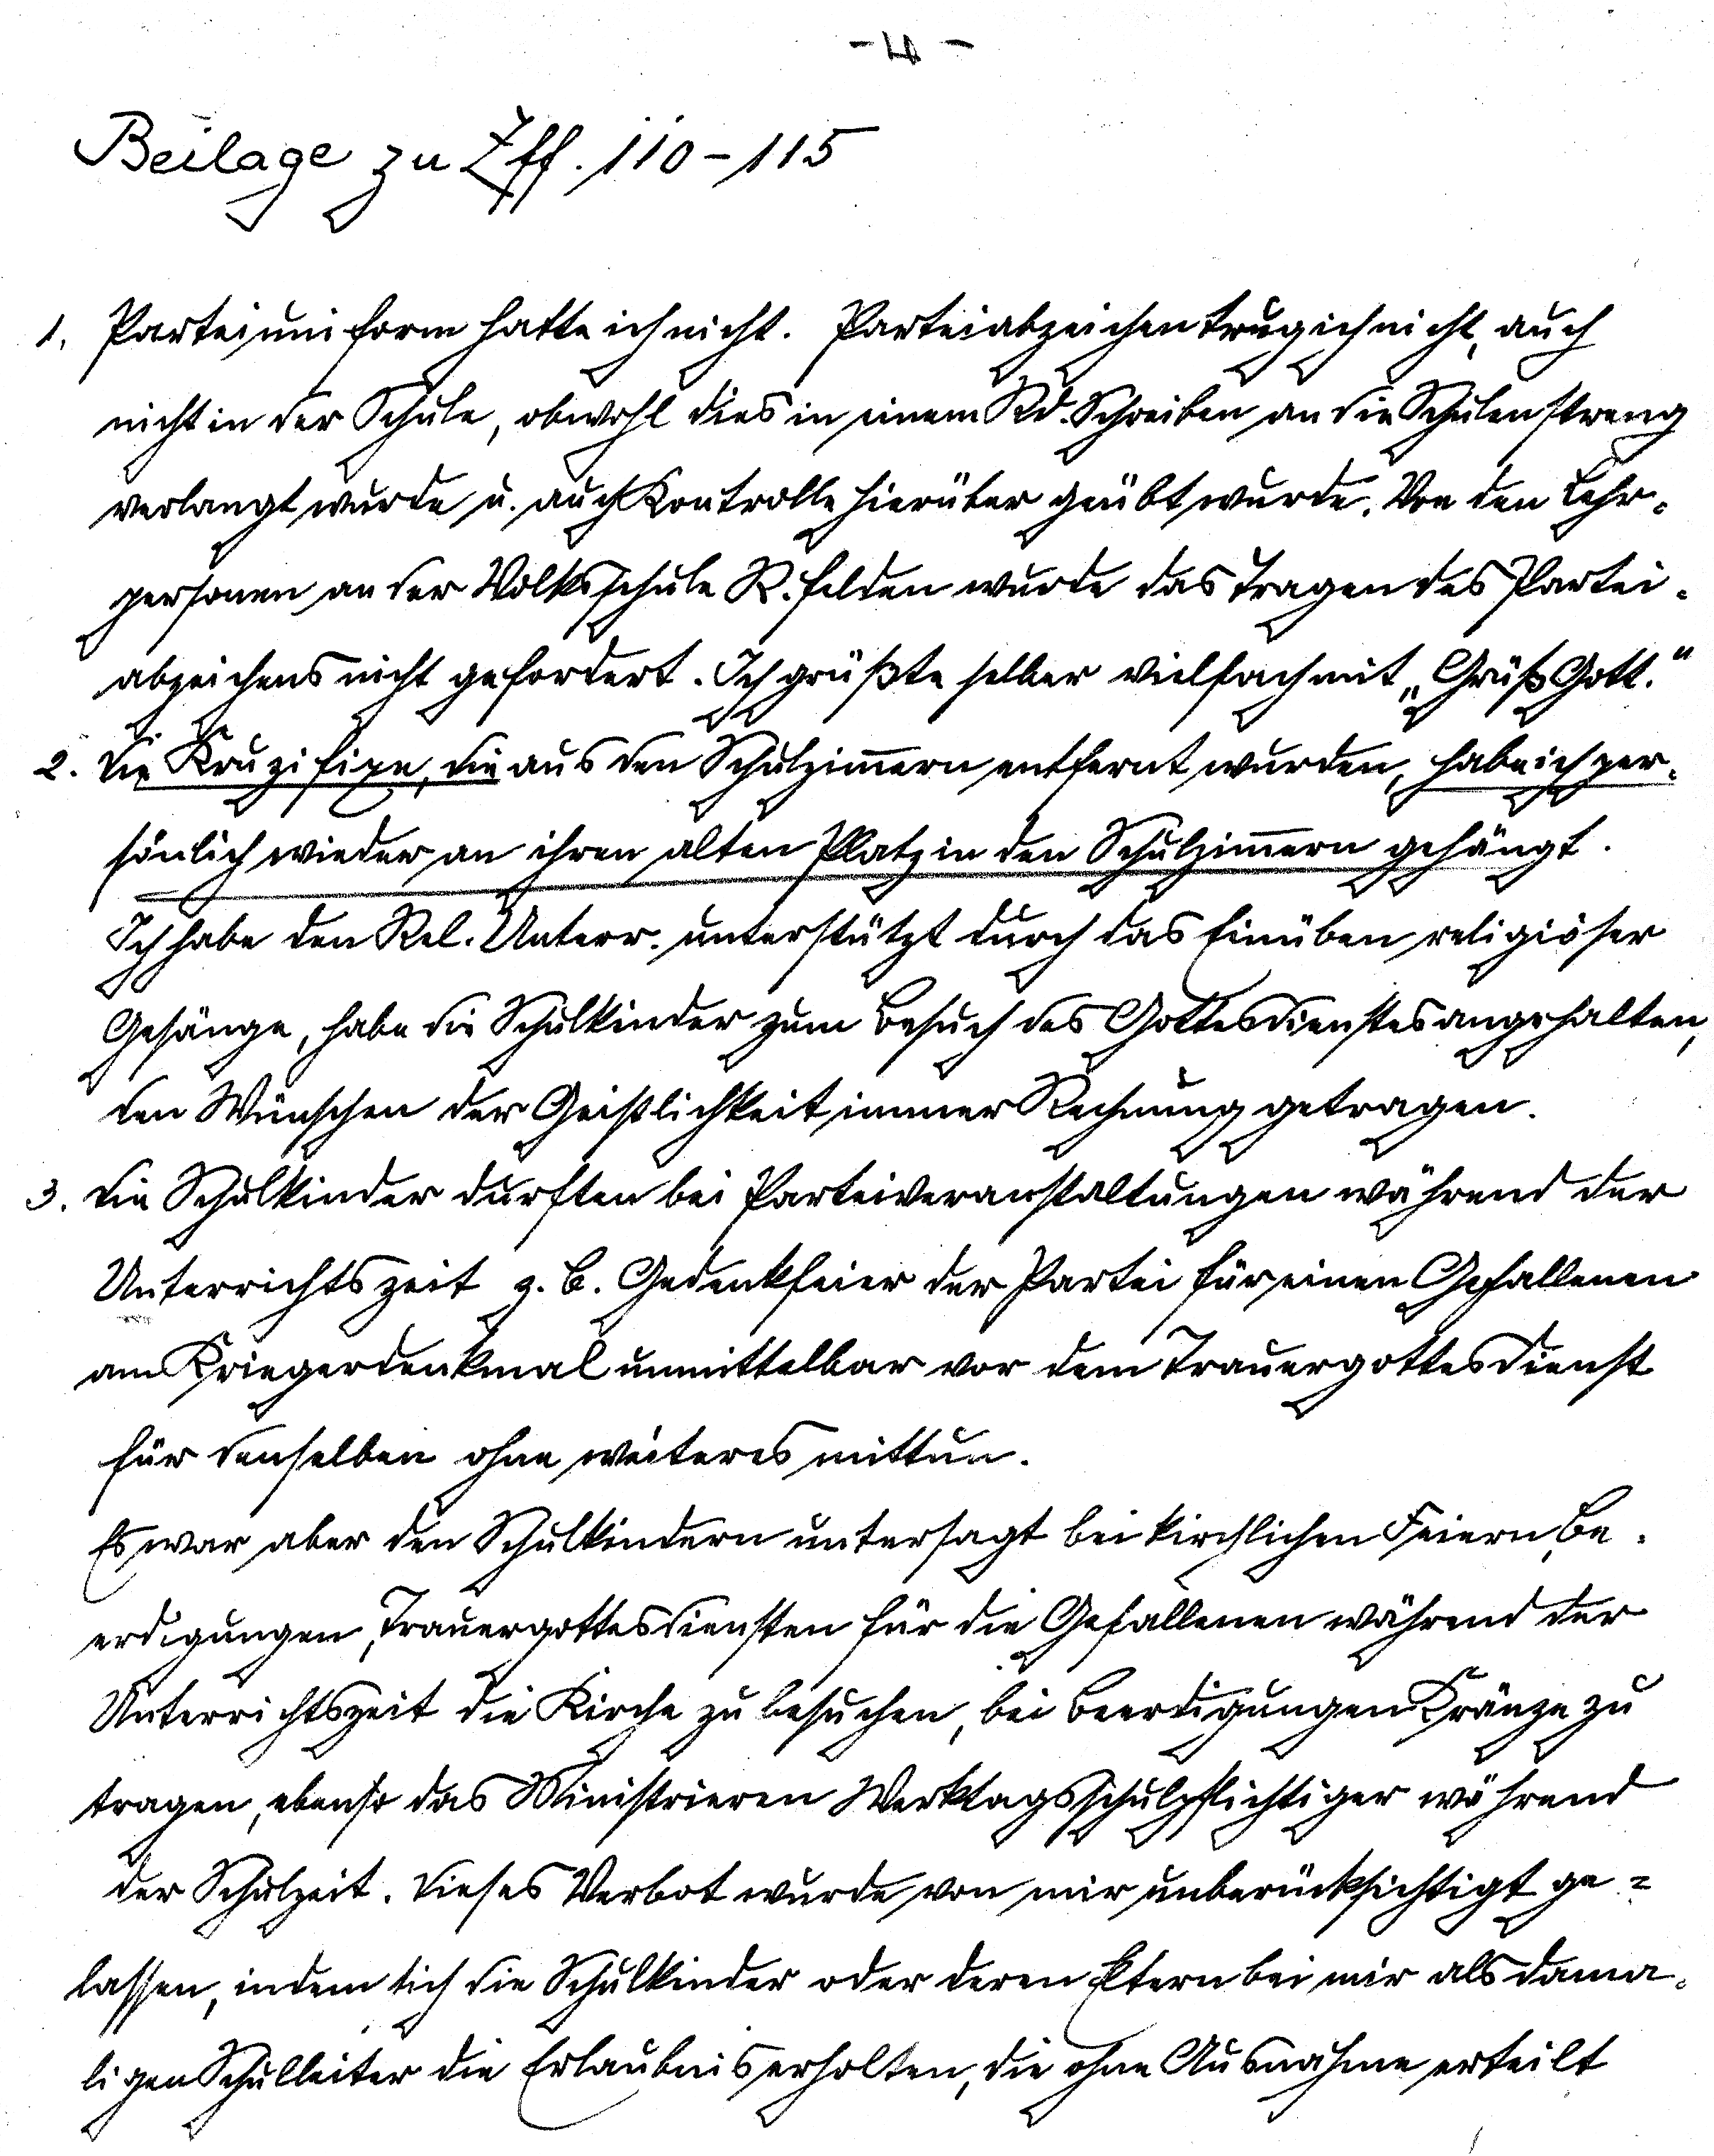 - 4 -
Beilage zu Zff. 110-115
1. Parteiuniform hatte ich nicht. Parteiabzeichen trug ich nicht, auch
nicht in der Schule, obwohl dies in einem Rd. Schreiben an die Schulen streng
verlangt wurde u. auch Kontrolle hierüber geübt wurde. Von den Lehr-
personen an der Volksschule R.felden wurde das Tragen des Partei-
abzeichens nicht gefordert. Ich grüßte selber vielfach mit „Grüß Gott."
2. Die Kruzifixe, die aus den Schulzimmern entfernt wurden, habe ich per-
sönlich wieder an ihren alten Platz in den Schulzimmern gehängt.
Ich habe den Rel. Unterr. unterstützt durch das Einüben religiöser
Gesänge, habe die Schulkinder zum Besuch des Gottesdienstes angehalten,
den Wünschen der Geistlichkeit immer Rechnung getragen.
3. Die Schulkinder durften bei Parteiveranstaltungen während der
Unterrichtszeit z. B. Gedenkfeier der Partei für einen Gefallenen
am Kriegerdenkmal unmittelbar vor dem Trauergottesdienst
für denselben ohne weiteres mittun.
Es war aber den Schulkindern untersagt bei kirchlichen Feiern, Be-
erdigungen, Trauergottesdiensten für die Gefallenen während der
Unterrichtszeit die Kirche zu besuchen, bei Beerdigungen Kränze zu
tragen, ebenso das Ministrieren Werktagsschulpflichtiger während
der Schulzeit. Dieses Verbot wurde von mir unberücksichtigt ge=
lassen, indem sich die Schulkinder oder deren Eltern bei mir als dama-
ligen Schulleiter die Erlaubnis erholten, die ohne Ausnahme erteilt